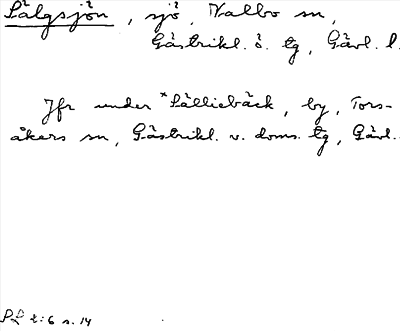 Sälgsjön, sjö, Valbo sn,
Gästrikl. ö. tg, Gävl. l.
Jfr under *Sälliebäck, by, Tors-
åkers sn, Gästrikl. v. doms. tg, Gävl.
t:6 s. 14